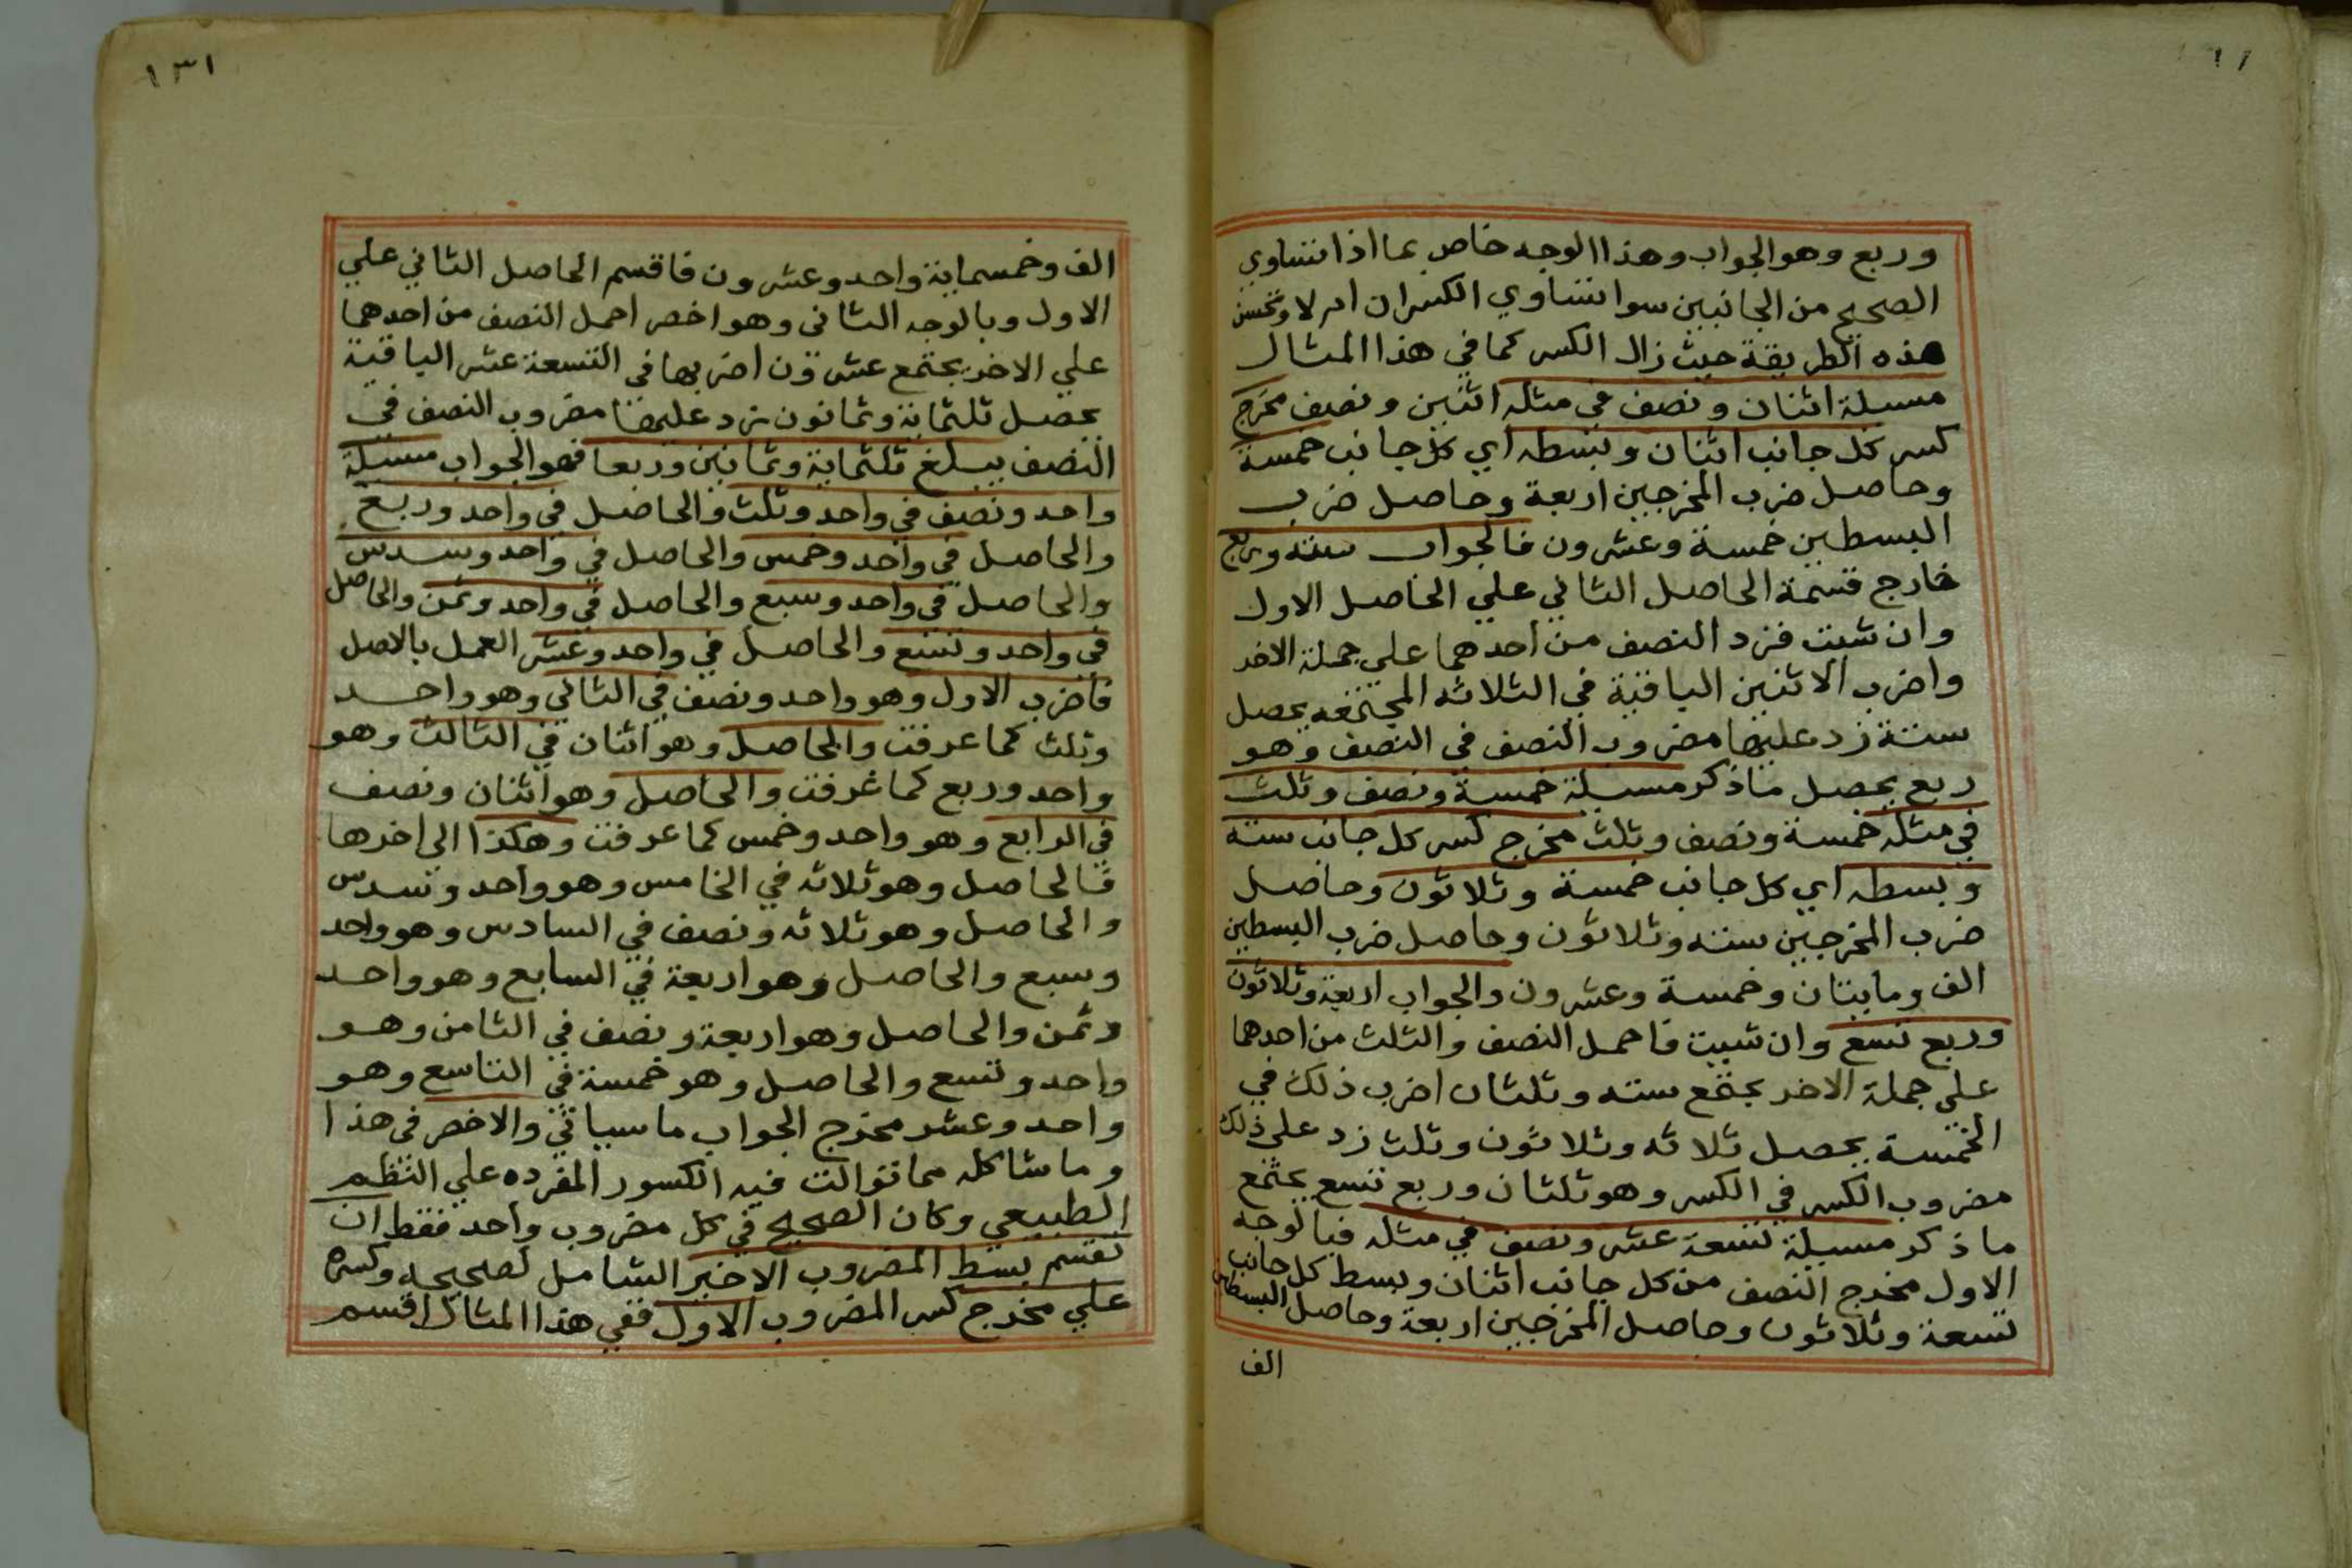 وربع وهو الجواب وهذا الوجه خاص بما اذا تساوي
الصحيح من الجانبين سوا تساوي الكسران ام لا وتحسن
هذه الطريقة حيث زال الكسر كما في هذا المثال
مسيلة اثنان ونصف في مثله اثنين ونصف مخرج
كسر كل جانب اثنان وبسطه اي كل جانب خمسة
وحاصل ضرب المخرجين اربعة وحاصل ضرب
البسطين خمسة وعشرون فالجواب سته وربع
خارج قسمة الحاصل الثاني علي الحاصل الاول
وان شيت فزد النصف من احدهما علي جملة الاخر
واضرب الاثنين الباقية في الثلاثه المجتمعه يحصل
ستة زد عليها مضروب النصف في النصف وهو
ربع يحصل ما ذكر مسيلة خمسة ونصف وثلث
في مثله خمسة ونصف وثلث مخرج كسر كل جانب ستة
وبسطه اي كل جانب خمسة وثلاثون وحاصل
ضرب المخرجين سته وثلاثون وحاصل ضرب البسطين
الف ومايتان وخمسة وعشرون والجواب اربعة وثلاثون
وربع تسع وان شيت فاحمل النصف والثلث من احدهما
علي جملة الاخر يجتمع سته وثلثان اضرب ذلك في
الخمسة يحصل ثلاثه وثلاثون وثلث زد علي ذلك
مضروب الكسر في الكسر وهو ثلثان وربع تسع يجتمع
ما ذكر مسيلة تسعة عشر ونصف في مثله فبالوجه
الاول مخرج النصف من كل جانب اثنان وبسط كل جانب
تسعة وثلاثون وحاصل المخرجين اربعة وحاصل البسطين
الف
١٣١
الف وخمسماية واحد وعشرون فاقسم الحاصل الثاني علي
الاول وبالوجه الثاني وهو اخصر احمل النصف من احدهما
علي الاخر يجتمع عشرون اضربها في التسعة عشر الباقية
يحصل ثلثماية وثمانون زد عليها مضروب النصف في
النصف يبلغ ثلثماية وثمانين وربعا فهو الجواب مسيلة
واحد ونصف في واحد وثلث والحاصل في واحد وربع
والحاصل في واحد وخمس والحاصل في واحد وسدس
والحاصل في واحد وسبع والحاصل في واحد وثمن والحاصل
في واحد وتسع والحاصل في واحد وعشر العمل بالاصل
فاضرب الاول وهو واحد ونصف في الثاني وهو واحد
وثلث كما عرفت والحاصل وهو اثنان في الثالث وهو
واحد وربع كما عرفت والحاصل وهو اثنان ونصف
في الرابع وهو واحد وخمس كما عرفت وهكذا الي اخرها
فالحاصل وهو ثلاثه في الخامس وهو واحد وسدس
والحاصل وهو ثلاثه ونصف في السادس وهو واحد
وسبع والحاصل وهو اربعة في السابع وهو واحد
وثمن والحاصل وهو اربعة ونصف في الثامن وهو
واحد وتسع والحاصل وهو خمسة في التاسع وهو
واحد وعشر مخرج الجواب ما سياتي والاخصر في هذا
وما شاكله مما توالت فيه الكسور المفرده علي النظم
الطبيعي وكان الصحيح في كل مضروب واحد فقط ان
تقسم بسط المضروب الاخير الشامل لصحيحه وكسره
علي مخرج كسر المضروب الاول ففي هذا المثال اقسم